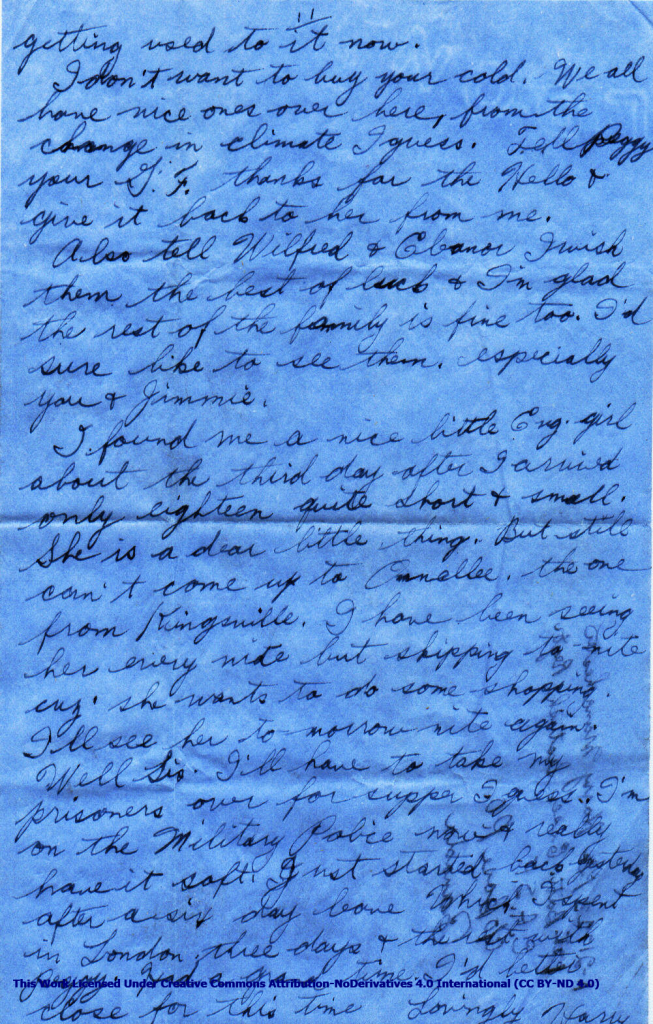 11
getting used to it now.
I don't want to buy your cold. We all
have nice ones over here, from the
change in climate I guess. Tell Peggy
your G. F. thanks for the Hello &
give it back to her from me.
Also tell Wilfred & Eleanor I wish
them the best of luck & I'm glad
the rest of the family is fine too. I'd
sure like to see them. especially
you & Jimmie.
I found me a nice little Eng. girl
about the third day after I arrived
only eighteen quite short & small.
She is a dear little thing. But still
can't come up to the one
from Kingsville. I have been seeing
her every nite but skipping to nite
cuz. she wants to do some shopping.
I'll see her to-morrow nite again.
Well Sis. I'll have to take my
prisoners over for supper I guess. I'm
on the Military Police now & really
have it soft. I just started back yesterday
after a six day leave which I spent
in London three days & the rest with
Peggy. Had a grand time. I'd better
close for this time Lovingly Harry
This Work Licensed Under Creative Commons Attribution-NoDerivatives 4.0 International (CC BY-ND 4.0)